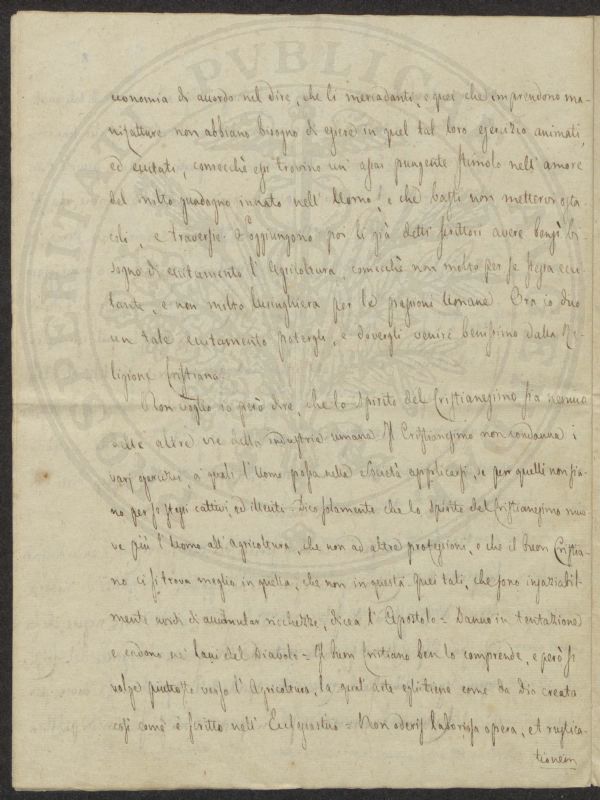 conomia di accordo nel dire, che li mercadanti, e quei che imprendono ma-
nifatture non abbiano bisogno di essere in quel tal loro esercizio animati,
ed eccitati, comecchè essi trovino un' assai pungente stimolo nell' amore
del molto guadagno innato nell' Uomo; e che basti non mettervi osta-
coli, e traversie. Soggiungono poi li già detti scrittori avere bensì bi-
sogno di eccitamento l' Agricoltura, comecchè non molto per se stessa ecci-
tante, e non molto lusinghiera per le passioni Umane. Ora io dico
un tale eccitamento potergli, e dovergli venire benissimo dalla Re-
ligione Cristiana.
Non voglio io però dire, che lo Spirito del Cristianesimo sia nemico
delle altre vie della industria umana. Il Cristianesimo non condanna i
varj esercizi a' quali l' Uomo possa nella Società applicarsi, se pur quelli non sia-
no per se stessi cattivi, ed illeciti. Dico solamente che lo Spirito del Cristianesimo muo-
ve più l' Uomo all' agricoltura, che non ad altre professioni, e che il buon Cristia-
no ci si trova meglio in quella, che non in questa. Quei tali, che sono insaziabil-
mente ingordi di accumular ricchezze, dicea l' Apostolo = Danno in tentazione
e cadono ne' lacci del Diavolo = Il buon Cristiano ben lo comprende, e però si
volge piuttosto verso l' Agricoltura, la qual' arte come da Dio creata
così com' è scritto nell' Ecclesiastico = Non oderis laboriosa opera, et rustica-
tionem